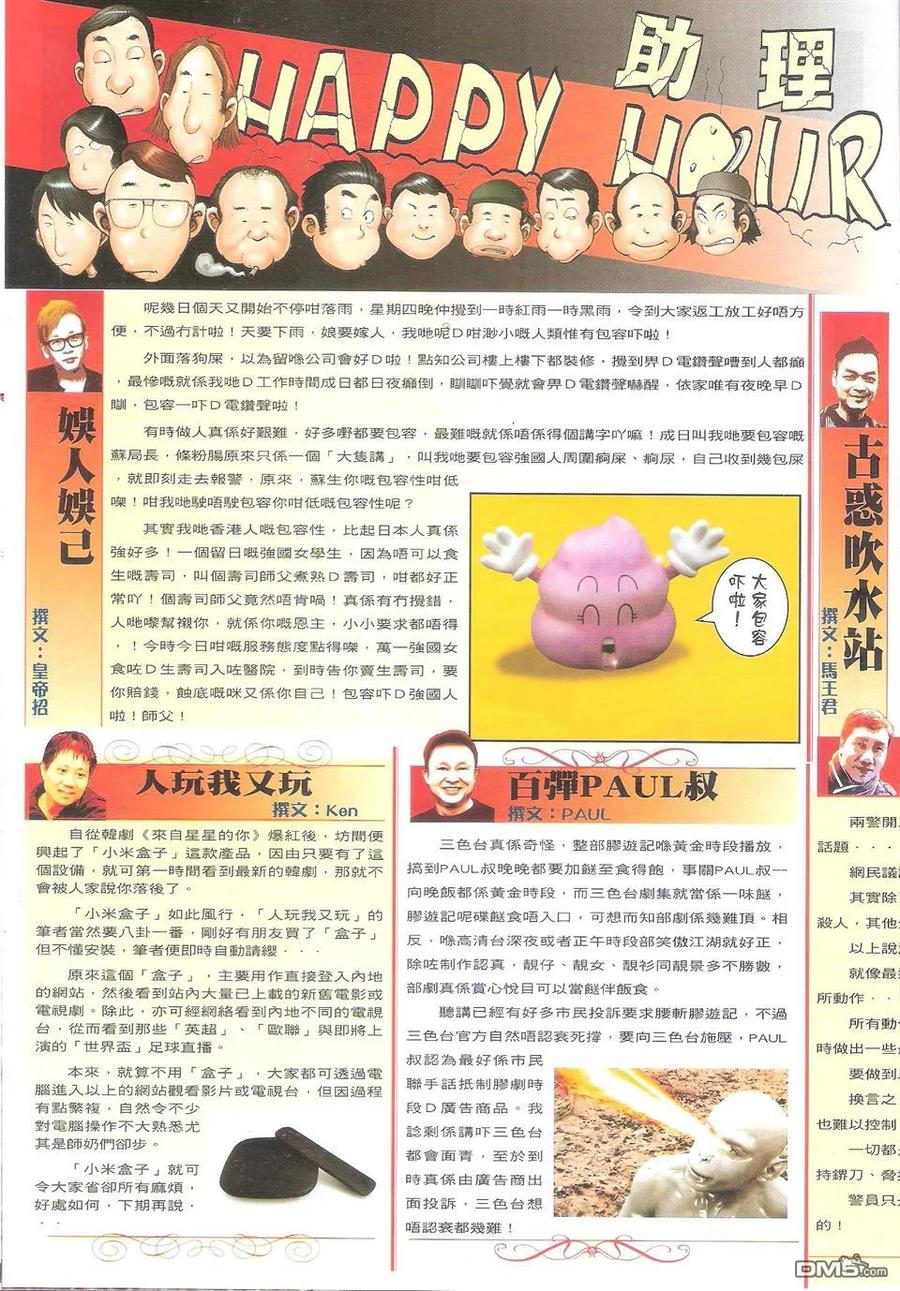 助理
HAPPY HOUR
娛人娛己
撰文：皇帝招
呢幾日個天又開始不停咁落雨，星期四晚仲攪到一時紅雨一時黑雨，令到大家返工放工好唔方
便，不過冇計啦！天要下雨，娘要嫁人，我哋呢D咁渺小嘅人類惟有包容吓啦！
外面落狗屎，以為留喺公司會好D啦！點知公司樓上樓下都裝修，攪到畀D電鑽聲嘈到人都癲
，最慘嘅就係我哋D工作時間成日都日夜癲倒，瞓瞓吓覺就會畀D電鑽聲嚇醒，依家唯有夜晚早D
瞓，包容一吓D電鑽聲啦！
有時做人真係好艱難，好多嘢都要包容，最難嘅就係唔係得個講字吖嘛！成日叫我哋要包容嘅
蘇局長，條粉腸原來只係一個「大隻講」，叫我哋要包容強國人周圍痾屎、痾尿，自己收到幾包屎
，就即刻走去報警，原來，蘇生你嘅包容性咁低
㗎！咁我哋駛唔駛包容你咁低嘅包容性呢？
其實我哋香港人嘅包容性，比起日本人真係
強好多！一個留日嘅強國女學生，因為唔可以食
生嘅壽司，叫個壽司師父煮熟D壽司，咁都好正
常吖！個壽司師父竟然唔肯喎！真係有冇攪錯，
人哋嚟幫襯你，就係你嘅恩主，小小要求都唔得
，！今時今日咁嘅服務態度點得㗎，萬一強國女
食咗D生壽司入咗醫院，到時告你賣生壽司，要
你賠錢，蝕底嘅咪又係你自己！包容吓D強國人
啦！師父！
大家包容
吓啦！
古惑吹水站
撰文：馬王君
人玩我又玩
撰文：Ken
自從韓劇《來自星星的你》爆紅後，坊間便
興起了「小米盒子」這款產品，因由只要有了這
個設備，就可第一時間看到最新的韓劇，那就不
會被人家說你落後了。
「小米盒子」如此風行，「人玩我又玩」的
筆者當然要八卦一番，剛好有朋友買了「盒子」
但不懂安裝，筆者便即時自動請纓．．．
原來這個「盒子」，主要用作直接登入內地
的網站，然後看到站內大量已上載的新舊電影或
電視劇。除此，亦可經網絡看到內地不同的電視
台，從而看到那些「英超」、「歐聯」與即將上
演的「世界盃」足球直播。
本來，就算不用「盒子」，大家都可透過電
腦進入以上的網站觀看影片或電視台，但因過程
有點繁複，自然令不少
對電腦操作不大熟悉尤
其是師奶們卻步。
「小米盒子」就可
令大家省卻所有麻煩，
好處如何，下期再說．
．．
百彈PAUL叔
撰文：PAUL
三色台真係奇怪，整部膠遊記喺黃金時段播放，
搞到PAUL叔晚晚都要加餸至食得飽，事關PAUL叔一
向晚飯都係黃金時段，而三色台劇集就當係一味餸，
膠遊記呢碟餸食唔入口，可想而知部劇係幾難頂。相
反，喺高清台深夜或者正午時段部笑傲江湖就好正，
除咗制作認真，靚仔、靚女、靚衫同靚景多不勝數，
部劇真係賞心悅目可以當餸伴飯食。
聽講已經有好多市民投訴要求腰斬膠遊記，不過
三色台官方自然唔認衰死撐，要向三色台施壓，PAUL
叔認為最好係市民
聯手話抵制膠劇時
段D廣告商品。我
諗剩係講吓三色台
都會面青，至於到
時真係由廣告商出
面投訴，三色台想
唔認衰都幾難！
兩警開
話題．．．
網民議
其實除
殺人，其他
以上說
就像最
所動作．．
所有動
時做出一些
要做到
換言之
也難以控制
一切都
持鎅刀、脅
警員只
的！
DM5.com